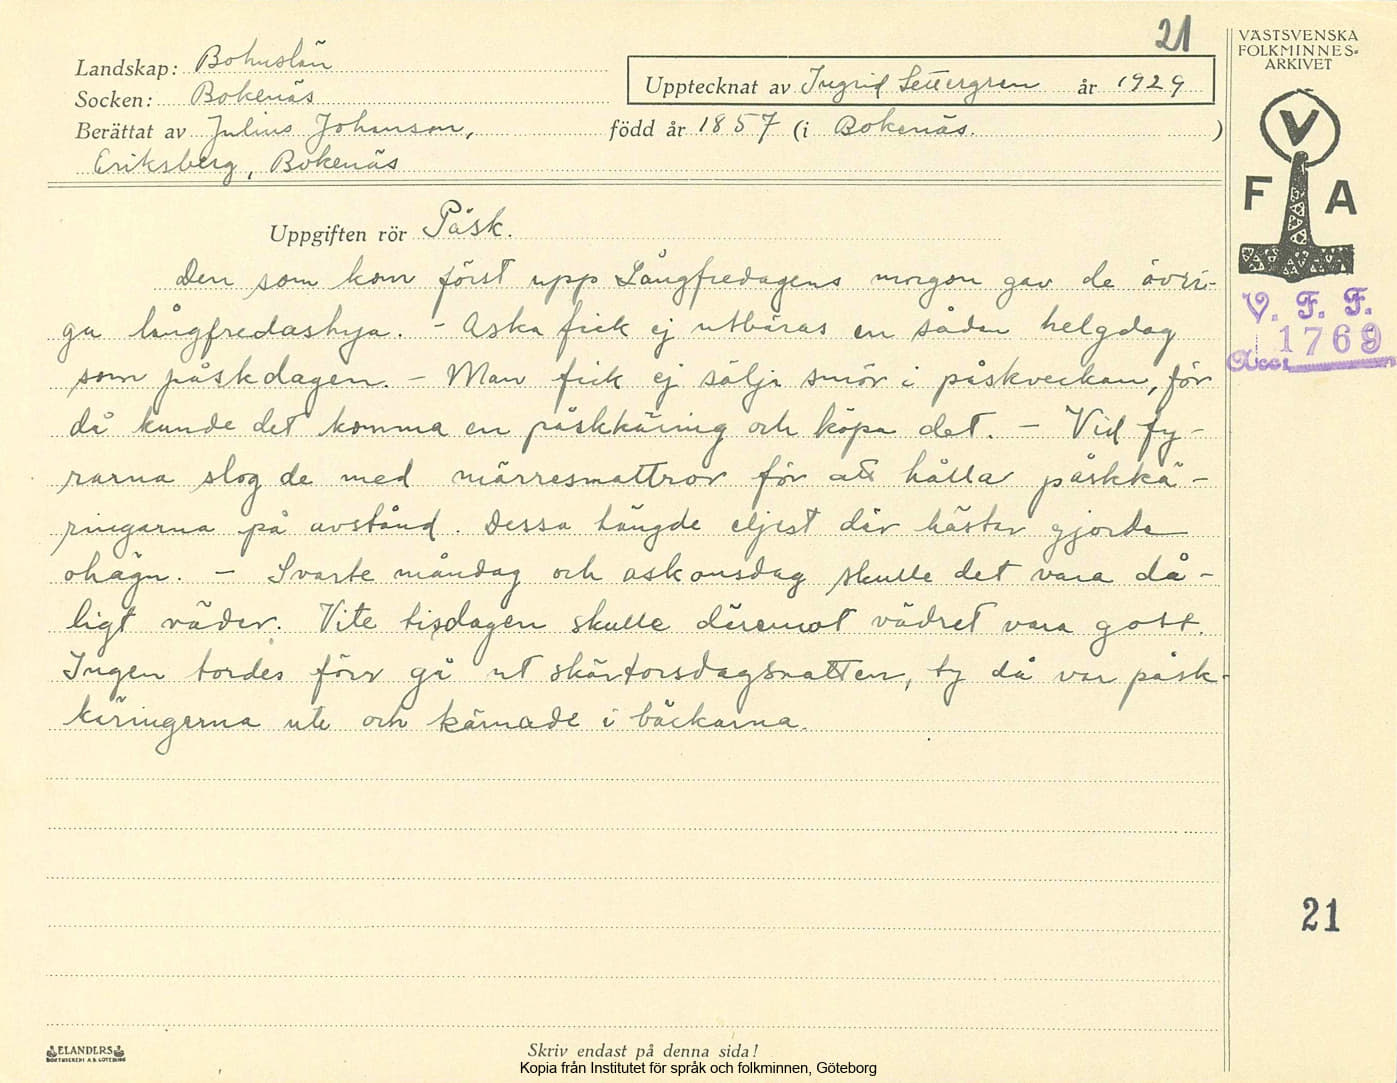 21
VÄSTSVENSKA
FOLKMINNES-
ARKIVET
Landskap: Bohuslän
Socken: Bokenäs
Upptecknat av Ingrid år 1929
Berättat av Julius Johanson, född år 1857 (i Bokenäs. )
Eriksberg, Bokenäs
V
F A
Uppgiften rör Påsk.
V. F. F.
1769
Acc.
Den som kom först upp Långfredagens morgon gav de övri-
ga långfredashya. - Aska fick ej utbäras en sådan helgdag
som påskdagen. - Man fick ej sälja smör i påskveckan, för
då kunde det komma en påskkäring och köpa det. - Vid fy-
rarna slog de med märresmattror för att hålla påskkä-
ringarna på avstånd. Dessa hängde eljest där hästar gjorde
ohägn. - Svarte måndag och askonsdag skulle det vara då-
ligt väder. Vite tisdagen skulle däremot vädret vara gott.
Ingen tordes förr gå ut skärtorsdagsnatten, ty då var påsk-
käringerna ute och kärnade i bäckarna.
21
ELANDERS
BOKTRYCKERI A.B. GÖTEBORG
Skriv endast på denna sida!
Kopia från Institutet för språk och folkminnen, Göteborg